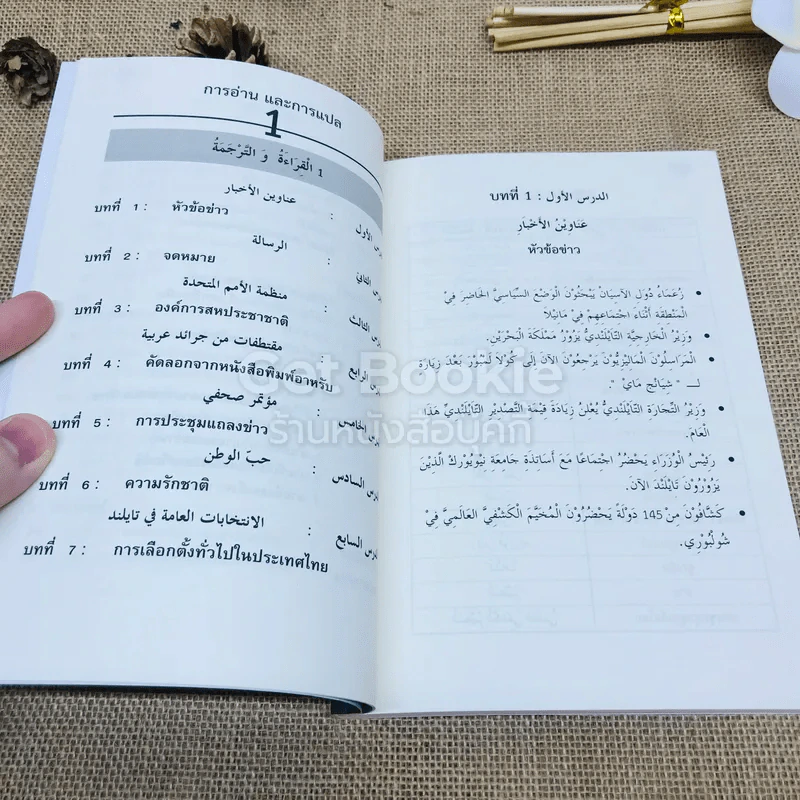 การอ่าน และการแปล
1
1 الْقِرَاءَةُ وَ التَّرْجَمَةُ
عناوين الأخبار
رس الأول :
บทที่ 1 : หัวข้อข่าว
الرسالة
رس الثاني :
บทที่ 2 : จดหมาย
منظمة الأمم المتحدة
رس الثالث :
บทที่ 3 : องค์การสหประชาชาติ
مقتطفات من جرائد عربية
رس الرابع :
บทที่ 4 : คัดลอกจากหนังสือพิมพ์อาหรับ
مؤتمر صحفي
رس الخامس :
บทที่ 5 : การประชุมแถลงข่าว
حبّ الوطن
درس السادس :
บทที่ 6 : ความรักชาติ
الانتخابات العامة في تايلند
درس السابع :
บทที่ 7 : การเลือกตั้งทั่วไปในประเทศไทย
บทที่ 1 : الدرس الأول
عَنَاوِيْنُ الأَخْبَارِ
หัวข้อข่าว
• زُعَمَاءُ دُوَلِ الآسِيَانِ يَبْحَثُوْنَ الْوَضْعَ السِّيَاسِيَّ الْحَاضِرَ فِيْ
الْمَنْطِقَةِ أَثْنَاءَ اجْتِمَاعِهِمْ فِيْ مَانِيْلَا
• وَزِيْرُ الْخَارِجِيَّةِ التَّايْلَنْدِيُّ يَزُوْرُ مَمْلَكَةَ الْبَحْرَيْنِ.
• الْمُرَاسِلُوْنَ الْمَالِيْزِيُّوْنَ يَرْجِعُوْنَ الآنَ إِلَى كُوْلَا لَمْبُوْرَ بَعْدَ زِيَارَةِ
لـــ " شِيَانْجِ مَايْ ".
• وَزِيْرُ التِّجَارَةِ التَّايْلَنْدِيُّ يُعْلِنُ زِيَادَةَ قِيْمَةِ التَّصْدِيْرِ التَّايْلَنْدِيِّ هَذَا
الْعَامَ.
• رَئِيْسُ الْوُزَرَاءِ يَحْضُرُ اجْتِمَاعًا مَعَ أَسَاتِذَةِ جَامِعَةِ نِيُوْيُوْرْكَ الَّذِيْنَ
يَزُوْرُوْنَ تَايْلَنْدَ الآنَ.
• كَشَّافُوْنَ مِنْ 145 دَوْلَةً يَحْضُرُوْنَ الْمُخَيَّمَ الْكَشْفِيَّ الْعَالَمِيَّ فِيْ
شُوْلْبُوْرِي.
Get Bookie
ร้านหนังสือบุ๊คกี้